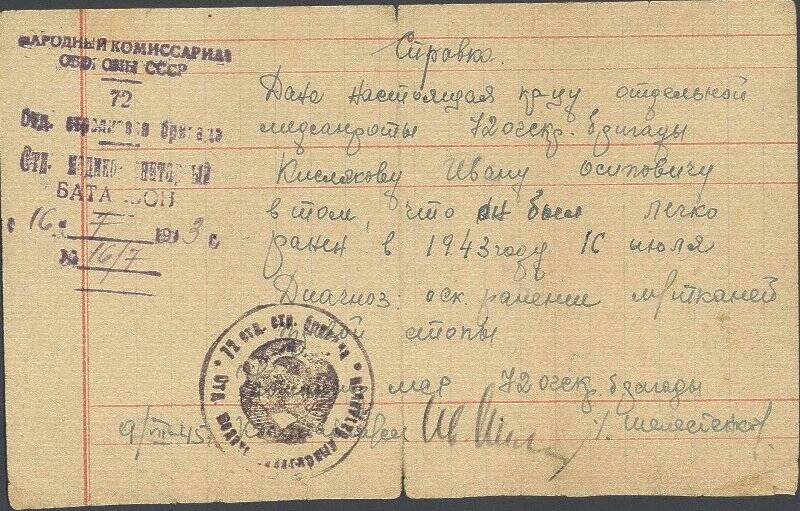 НАРОДНЫЙ КОМИССАРИАТ
ОБОРОНЫ СССР
72
Отд. стрелковая бригада
Отд.
БАТАЛЬОН
16 7 1943 г.
№ 16/7
Справка.
Дана настоящая отдельной
медсанроты 72 очскр. бригады
Кислякову Ивану Осиповичу
в том, что он был легко
ранен в 1943 году 16 июля
Диагноз: оск. ранение м/тканей
стопы
72 очскр. бригады
9/VIII-45
72 отд. стр. бригада